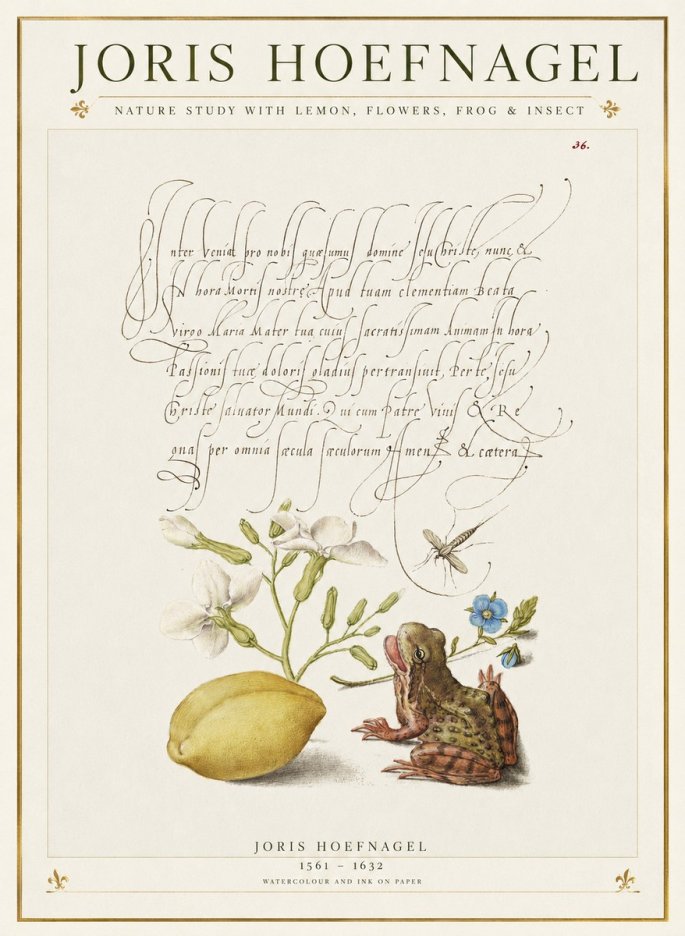 JORIS HOEFNAGEL
NATURE STUDY WITH LEMON, FLOWERS, FROG & INSECT
36.
nter veniat pro nobis quæsumus domine Jesu Christe, nunc &
IN hora Mortis nostrę Apud tuam clementiam Beata
virgo Maria Mater tua cuius sacratissimam Animam in hora
Passionis tuæ doloris gladius pertransiuit, Per te Jesu
Christe saluator Mundi. Qui cum Patre viuis & Re
gnas per omnia sæcula sæculorum Amen & cætera
JORIS HOEFNAGEL
1561 – 1632
WATERCOLOUR AND INK ON PAPER